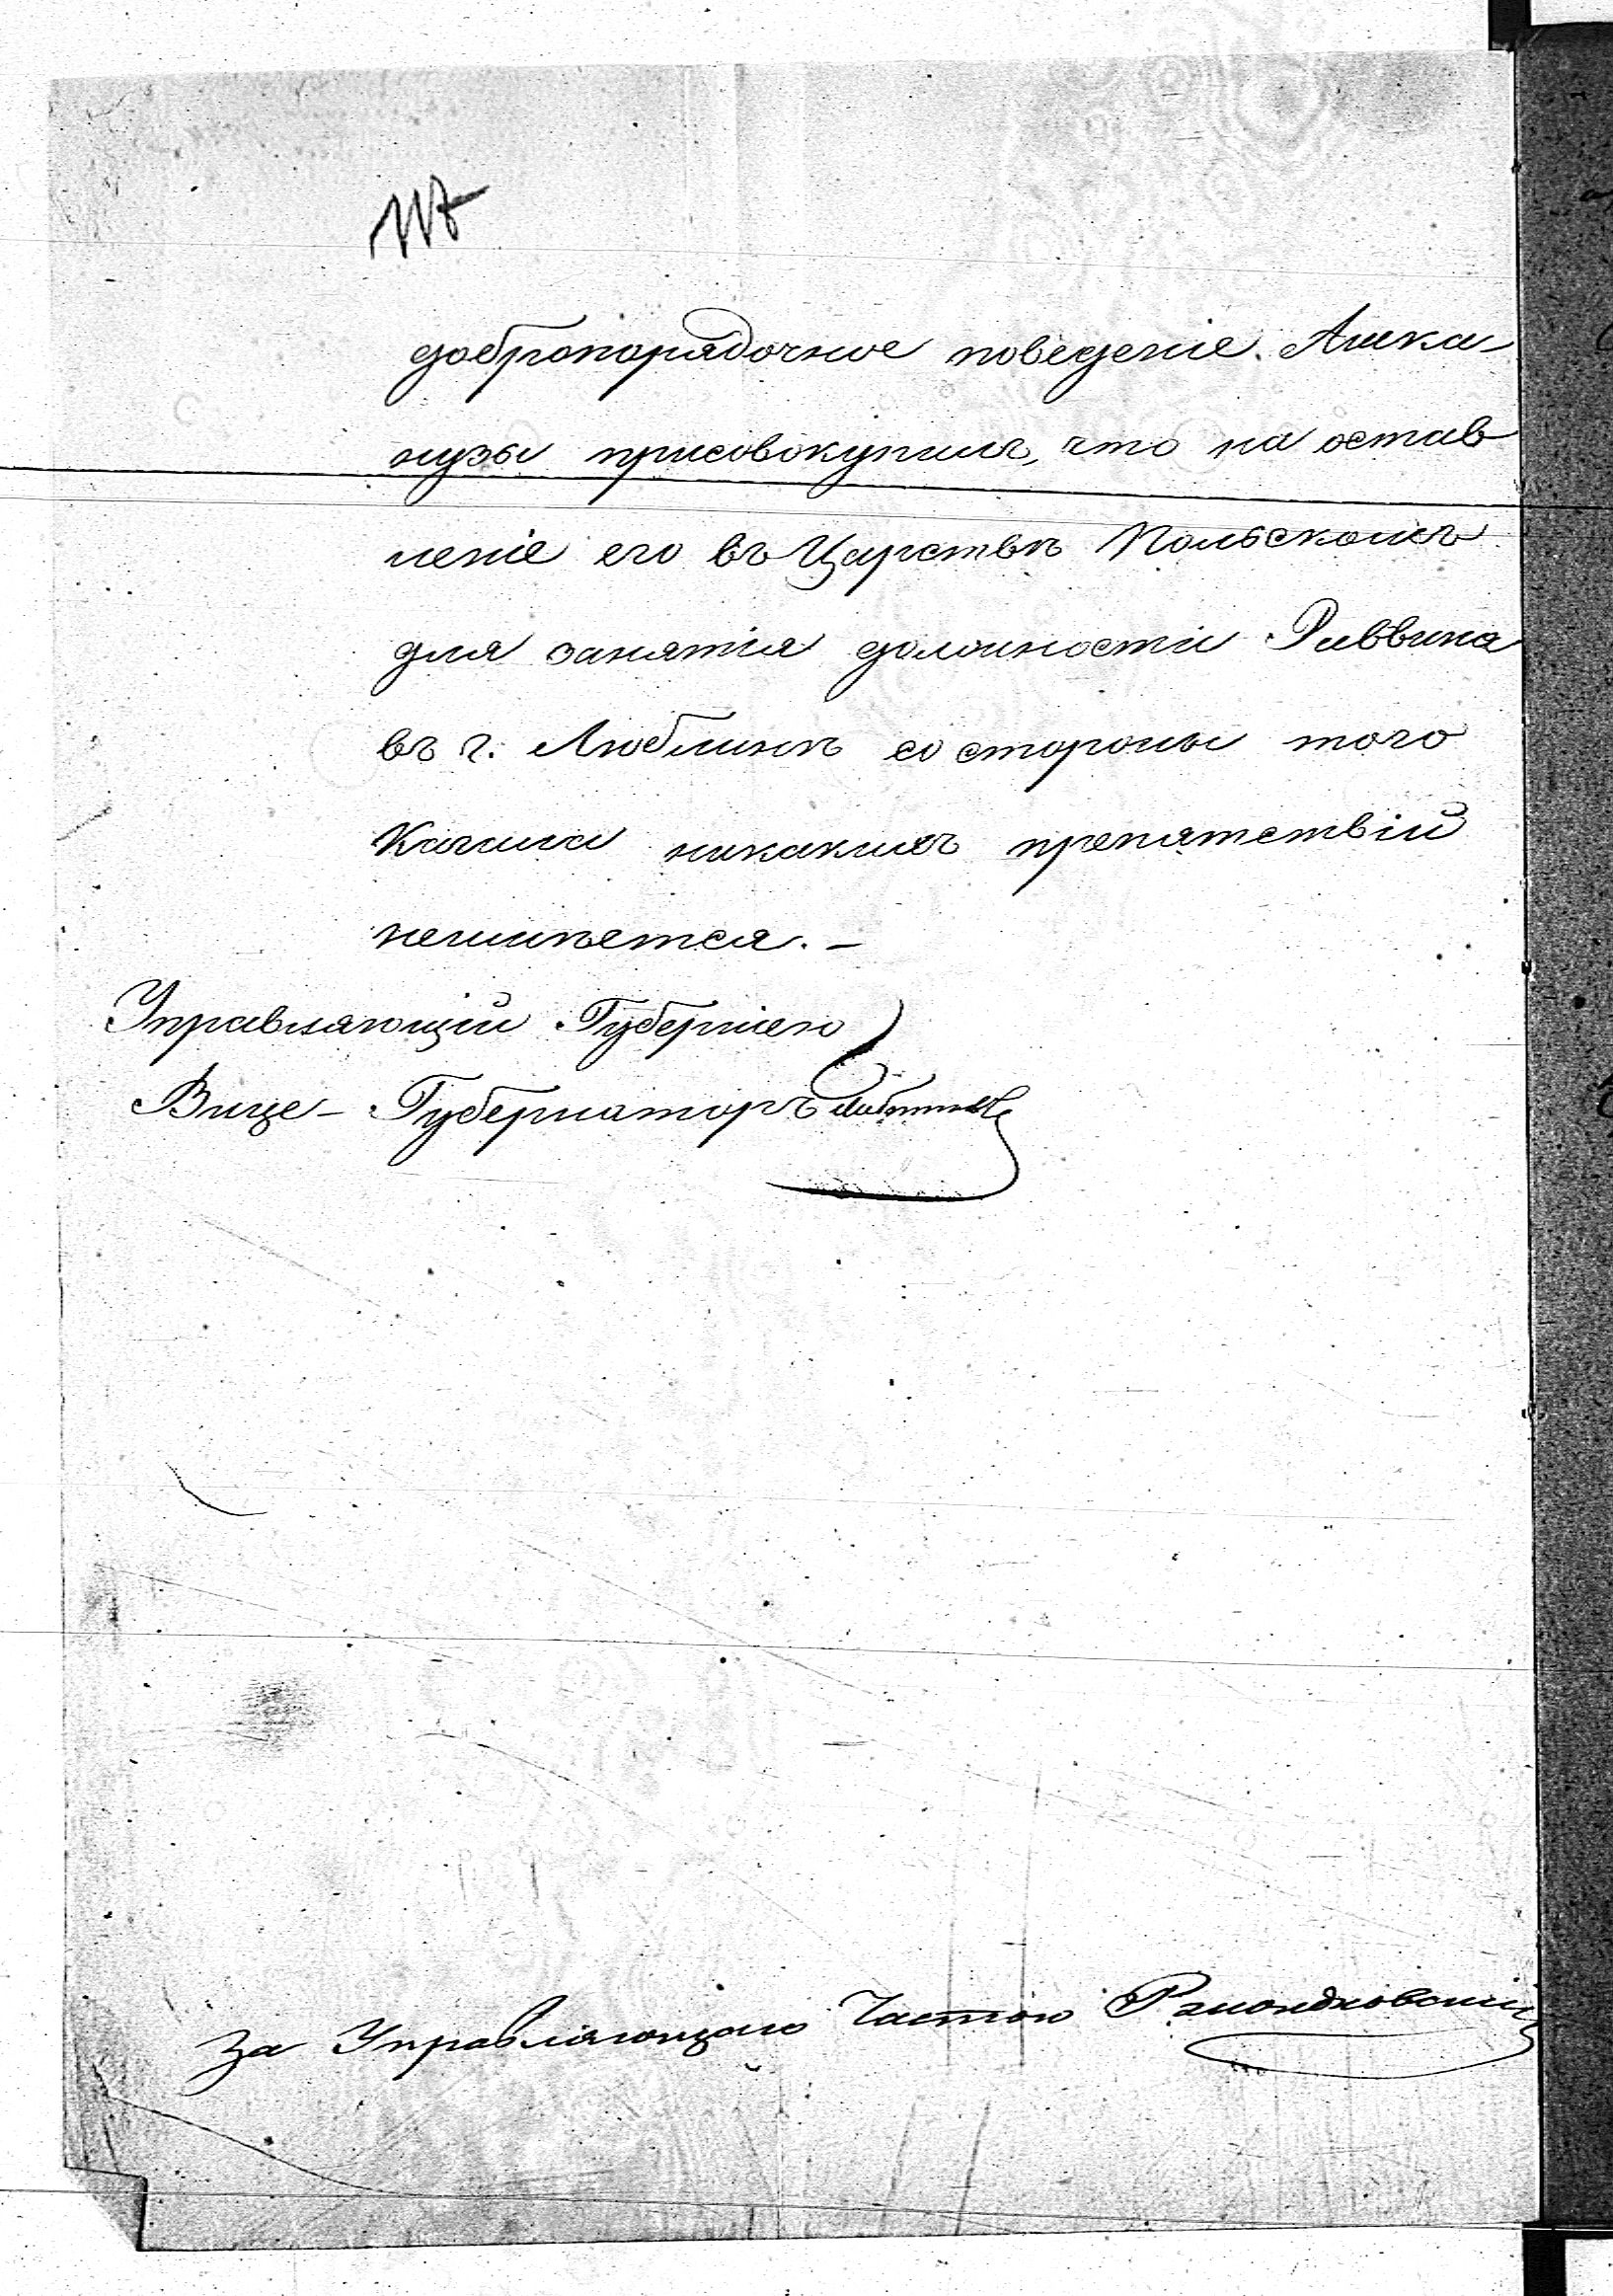 добропорядочное поведеніе. Ашке-
нузы присовокупилъ, что на остав
леніе его въ Царствѣ Польскомъ
для занятія должности Раввина
въ г. Люблинѣ со стороны того
Кагала никакихъ препятствій
неимѣется. –
Управляющій Губерніею
Вице-Губернаторъ
За Управляющаго Частію